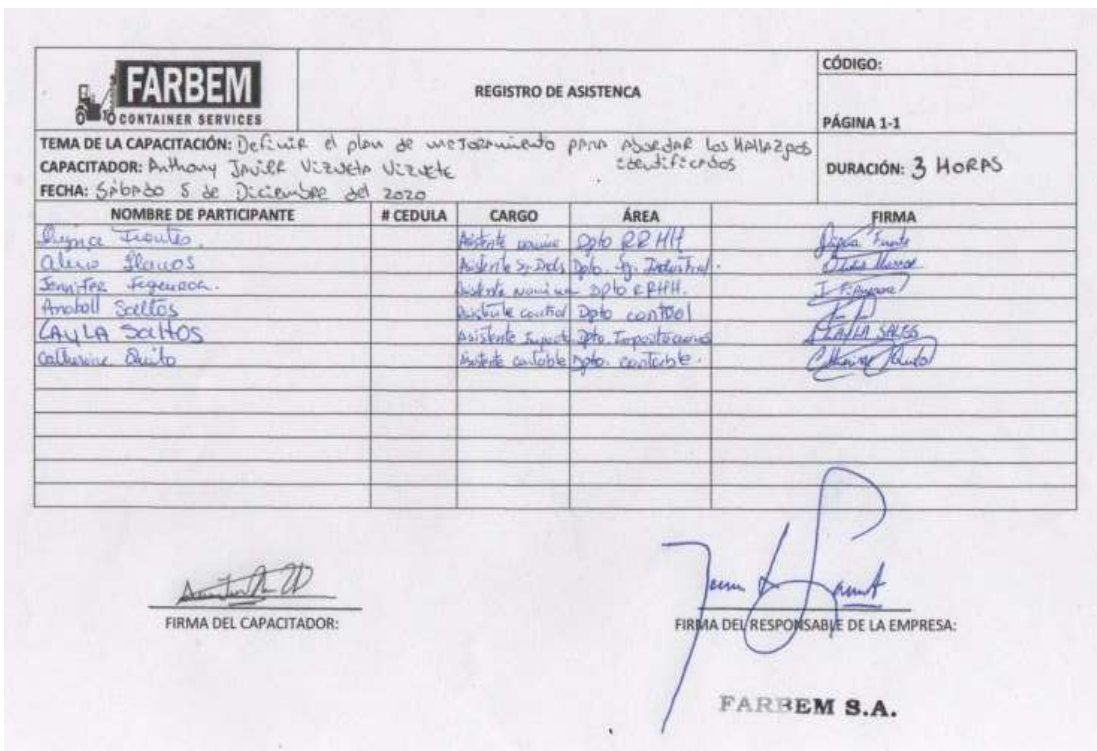 FARBEM
CONTAINER SERVICES
REGISTRO DE ASISTENCA
CÓDIGO:
PÁGINA 1-1
TEMA DE LA CAPACITACIÓN: Definir el plan de mejoramiento para abordar los Hallazgos identificados
CAPACITADOR: Anthony Javier Vizueta Vizuete
FECHA: Sábado 5 de Diciembre del 2020
DURACIÓN: 3 HORAS
NOMBRE DE PARTICIPANTE # CEDULA CARGO ÁREA FIRMA
Asistente Dpto RRHH
Asistente Dpto. Industrial.
Jennifer Figueroa. Asistente Nomina Dpto RRHH.
Anabell Saltos Asistente control Dpto control
LAYLA SALTOS Asistente Import Dpto. Importaciones LAYLA SALTOS
Catherine Quito Asistente contable Dpto. contable.
FIRMA DEL CAPACITADOR:
FIRMA DEL RESPONSABLE DE LA EMPRESA:
FARBEM S.A.